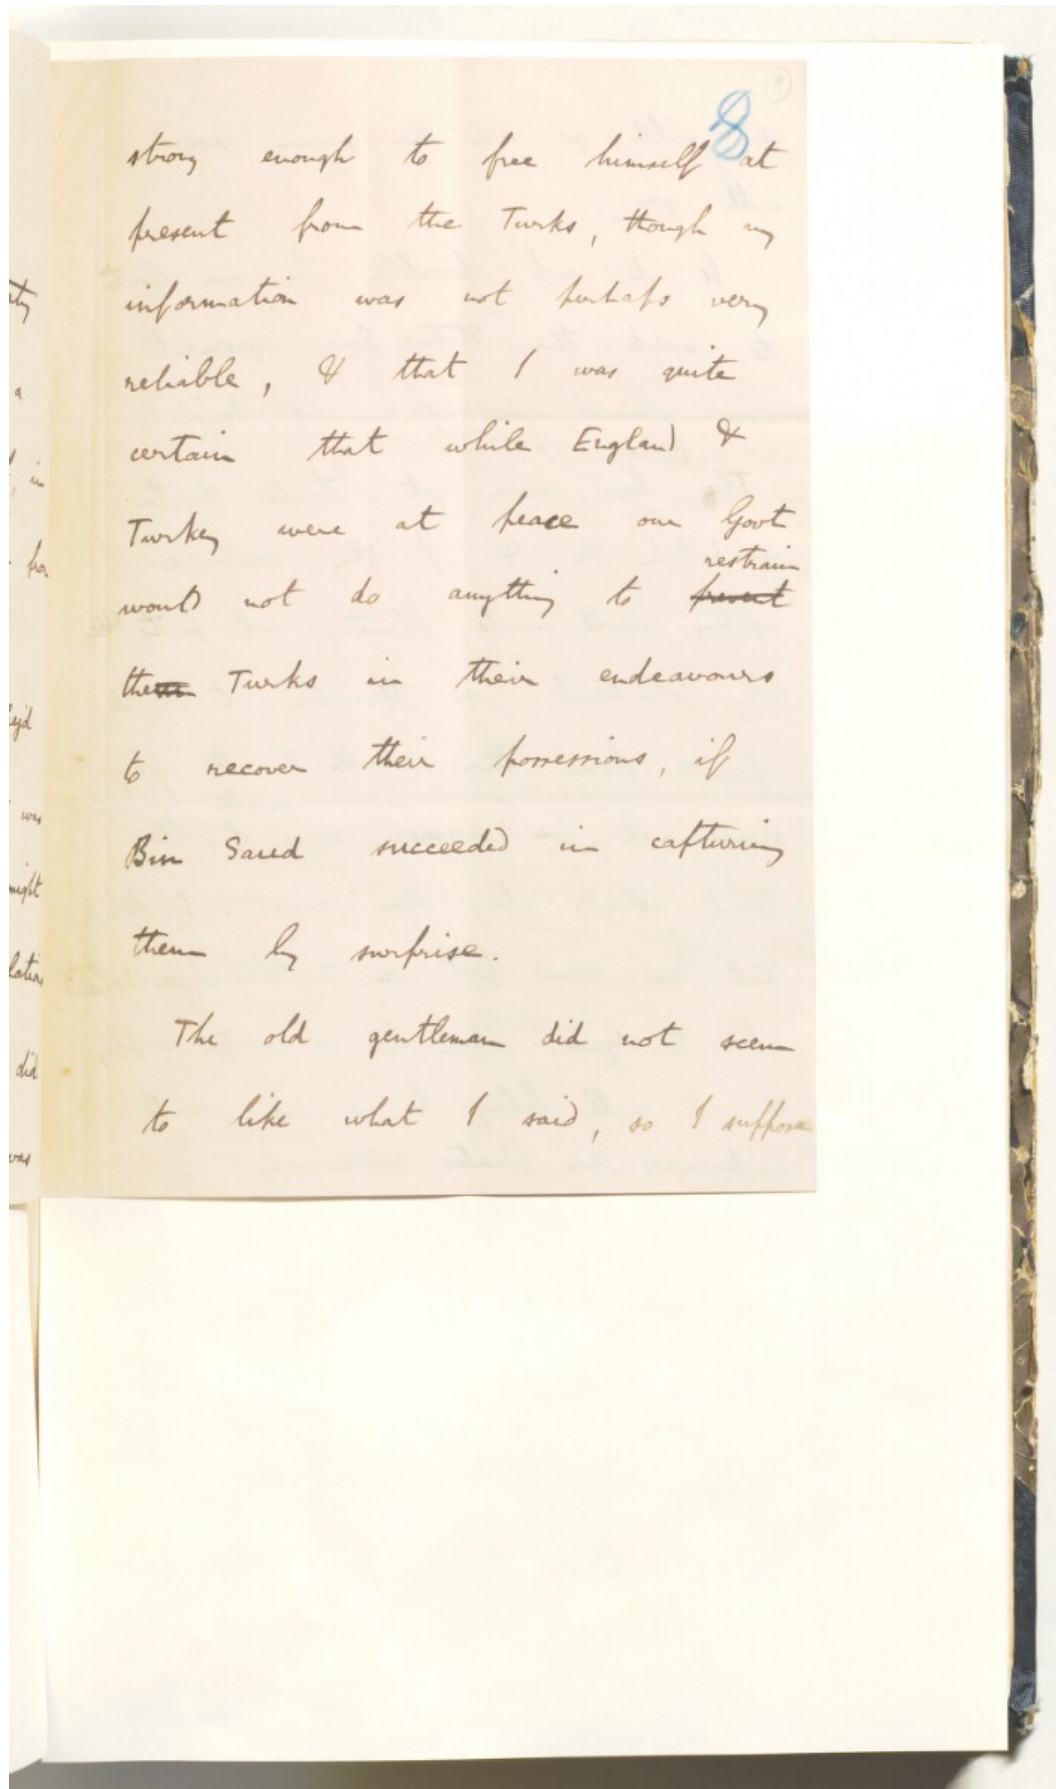 8
strong enough to free himself at
present from the Turks, though my
information was not perhaps very
reliable, & that I was quite
certain that while England &
Turkey were at peace our Govt
restrain
would not do anything to prevent
them Turks in their endeavours
to recover their possessions, if
Bin Saud succeeded in capturing
them by surprise.
The old gentleman did not seem
to like what I said, so I suppose
a
in
was
might
did
was